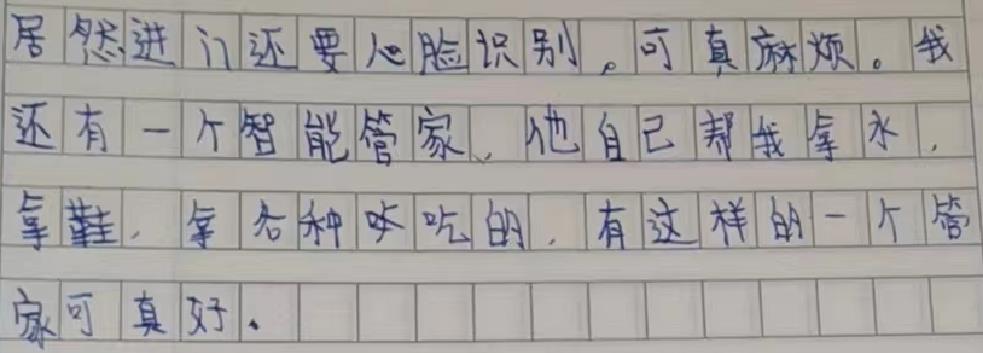 居然进门还要人脸识别。可真麻烦。我
还有一个智能管家、他自己帮我拿水,
拿鞋,拿各种吃的,有这样的一个管
家可真好.